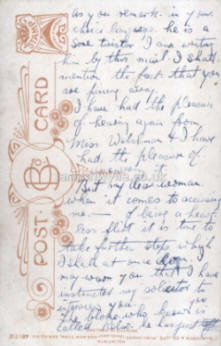 As you remark in your
choice language he is a
sore twister I am writing
him by this mail & shall
mention the fact that you
are pining away.
I have had the pleasure
of hearing again from
Miss & I have
had the pleasure of
But my dear woman
when it comes to accusing
me — of being a heart
less flirt it is time to
take further steps which
I shall at once. &
may warn you that I have
instructed my solicitor to
you. &
The bloke who
called he
POST CARD